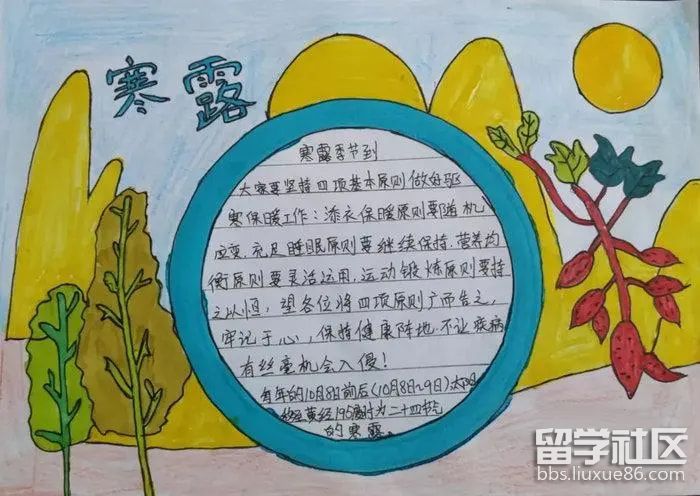 寒露
寒露季节到
大家要坚持四项基本原则做好驱
寒保暖工作：添衣保暖原则要随机
应变，充足睡眠原则要继续保持，营养均
衡原则要灵活运用，运动锻炼原则要持
之以恒，望各位将四项原则广而告之，
牢记于心，保持健康阵地，不让疾病
有丝毫机会入侵！
每年的10月8日前后（10月8日~9日）太阳
黄经195度时为二十四节气
的寒露。
留学社区
bbs.liuxue86.com